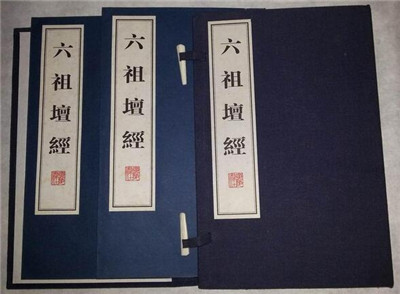 六祖壇經
六祖壇經
六祖壇經